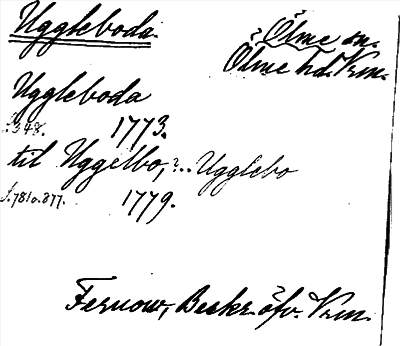 Uggleboda.
Ölme sn.
Ölme hd. Vrm.
Uggleboda
s. 348. 1773.
til Uggelbo, ?.. Ugglebo
s. 781 o. 877. 1779.
Fernow, Beskr. öfv. Vrm.